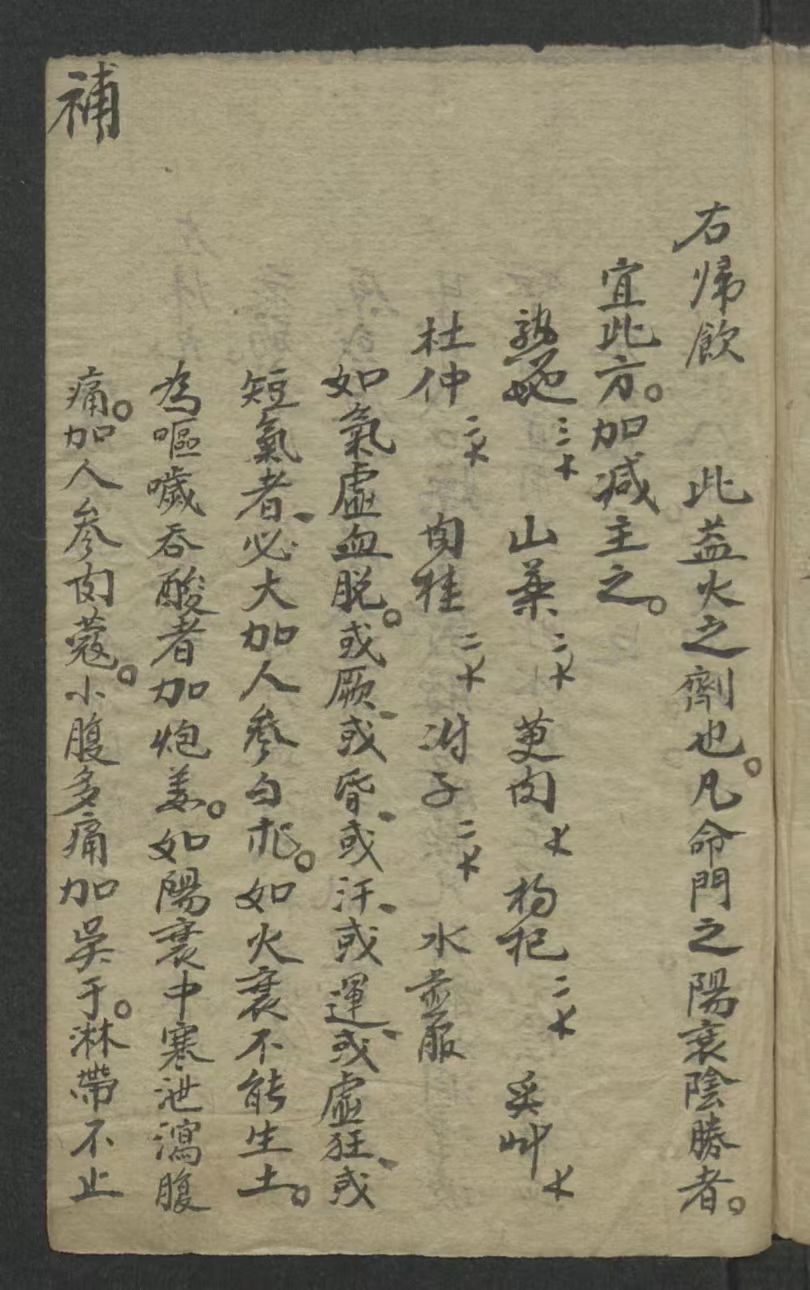 右歸飲　此益火之劑也。凡命門之陽衰陰勝者。
宜此方。加減主之。
熟地三木　山藥二木　萸肉木　枸杞二木　炙艸木
杜仲二木　肉桂二木　附子二木　水煎服
如氣虛血脱。或厥、或昏、或汗、或運、或虛狂、或
短氣者、必大加人參白朮。如火衰不能生土。
為嘔噦吞酸者加炮姜。如陽衰中寒泄瀉腹
痛。加人參肉蔻。小腹多痛加吳于。淋帶不止
補